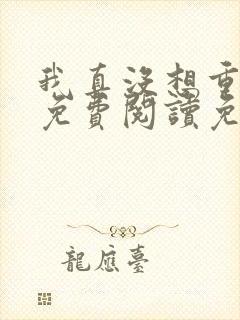 我真沒想重
免費閱讀免
龍應臺